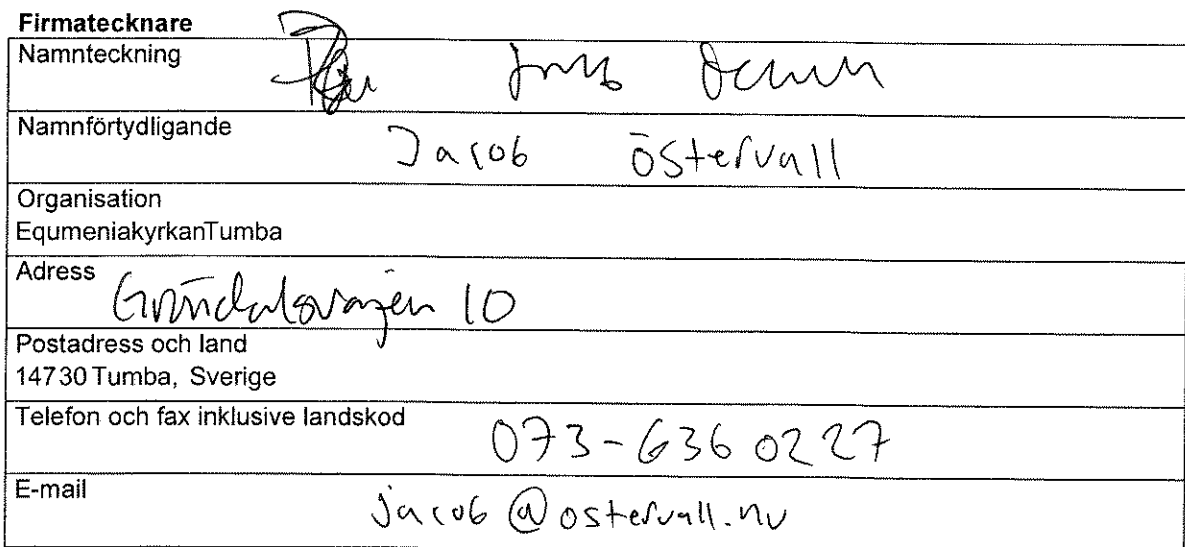 Firmatecknare
Namnteckning
Namnförtydligande
Jacob Östervall
Organisation
EqumeniakyrkanTumba
Adress
Gröndalsvägen 10
Postadress och land
14730 Tumba, Sverige
Telefon och fax inklusive landskod
073-636 02 27
E-mail
jacob@ostervall.nu